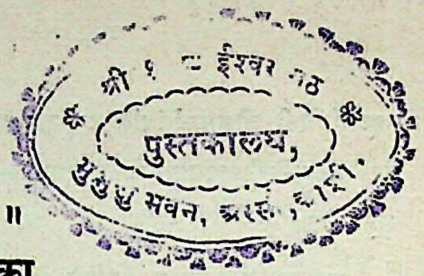 श्री ईश्वर मठ
पुस्तकालय,
मुमुक्षु भवन,
॥
का